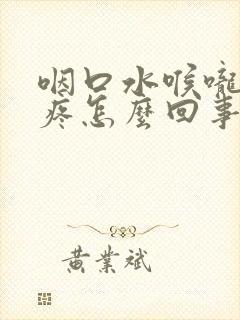 咽口水喉嚨
疼怎麼回事
黃業斌